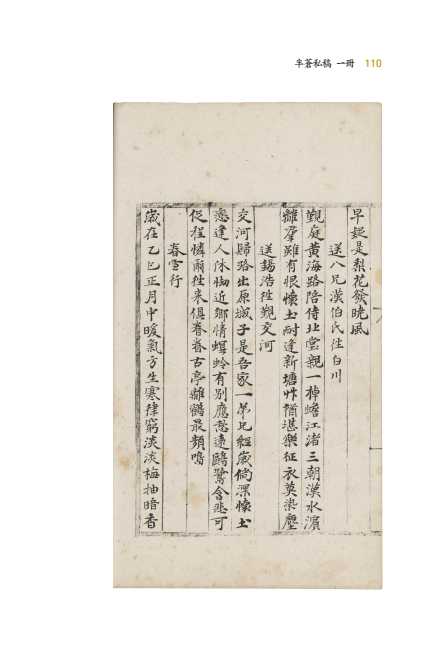 半蒼私稿 一冊 110
早疑是梨花發曉風
送八兄漢伯氏往白川
覲庭黃海路陪侍北堂親一棹蟾江渚三朝漢水濱
離羣雖有恨懷土耐逢新塘艸猶堪樂征衣莫染塵
送錫浩往覲交河
交河歸路出原城子是吾家一弟兄經歲倘深懷土
戀逢人休恸近鄉情螟蛉有別應愁遠鷗鷺含悲可
促程憐爾往來俱眷眷古亭離鶴最頻鳴
春雪行
歲在乙巳正月中暖氣方生寒律窮淡淡梅抽暗香